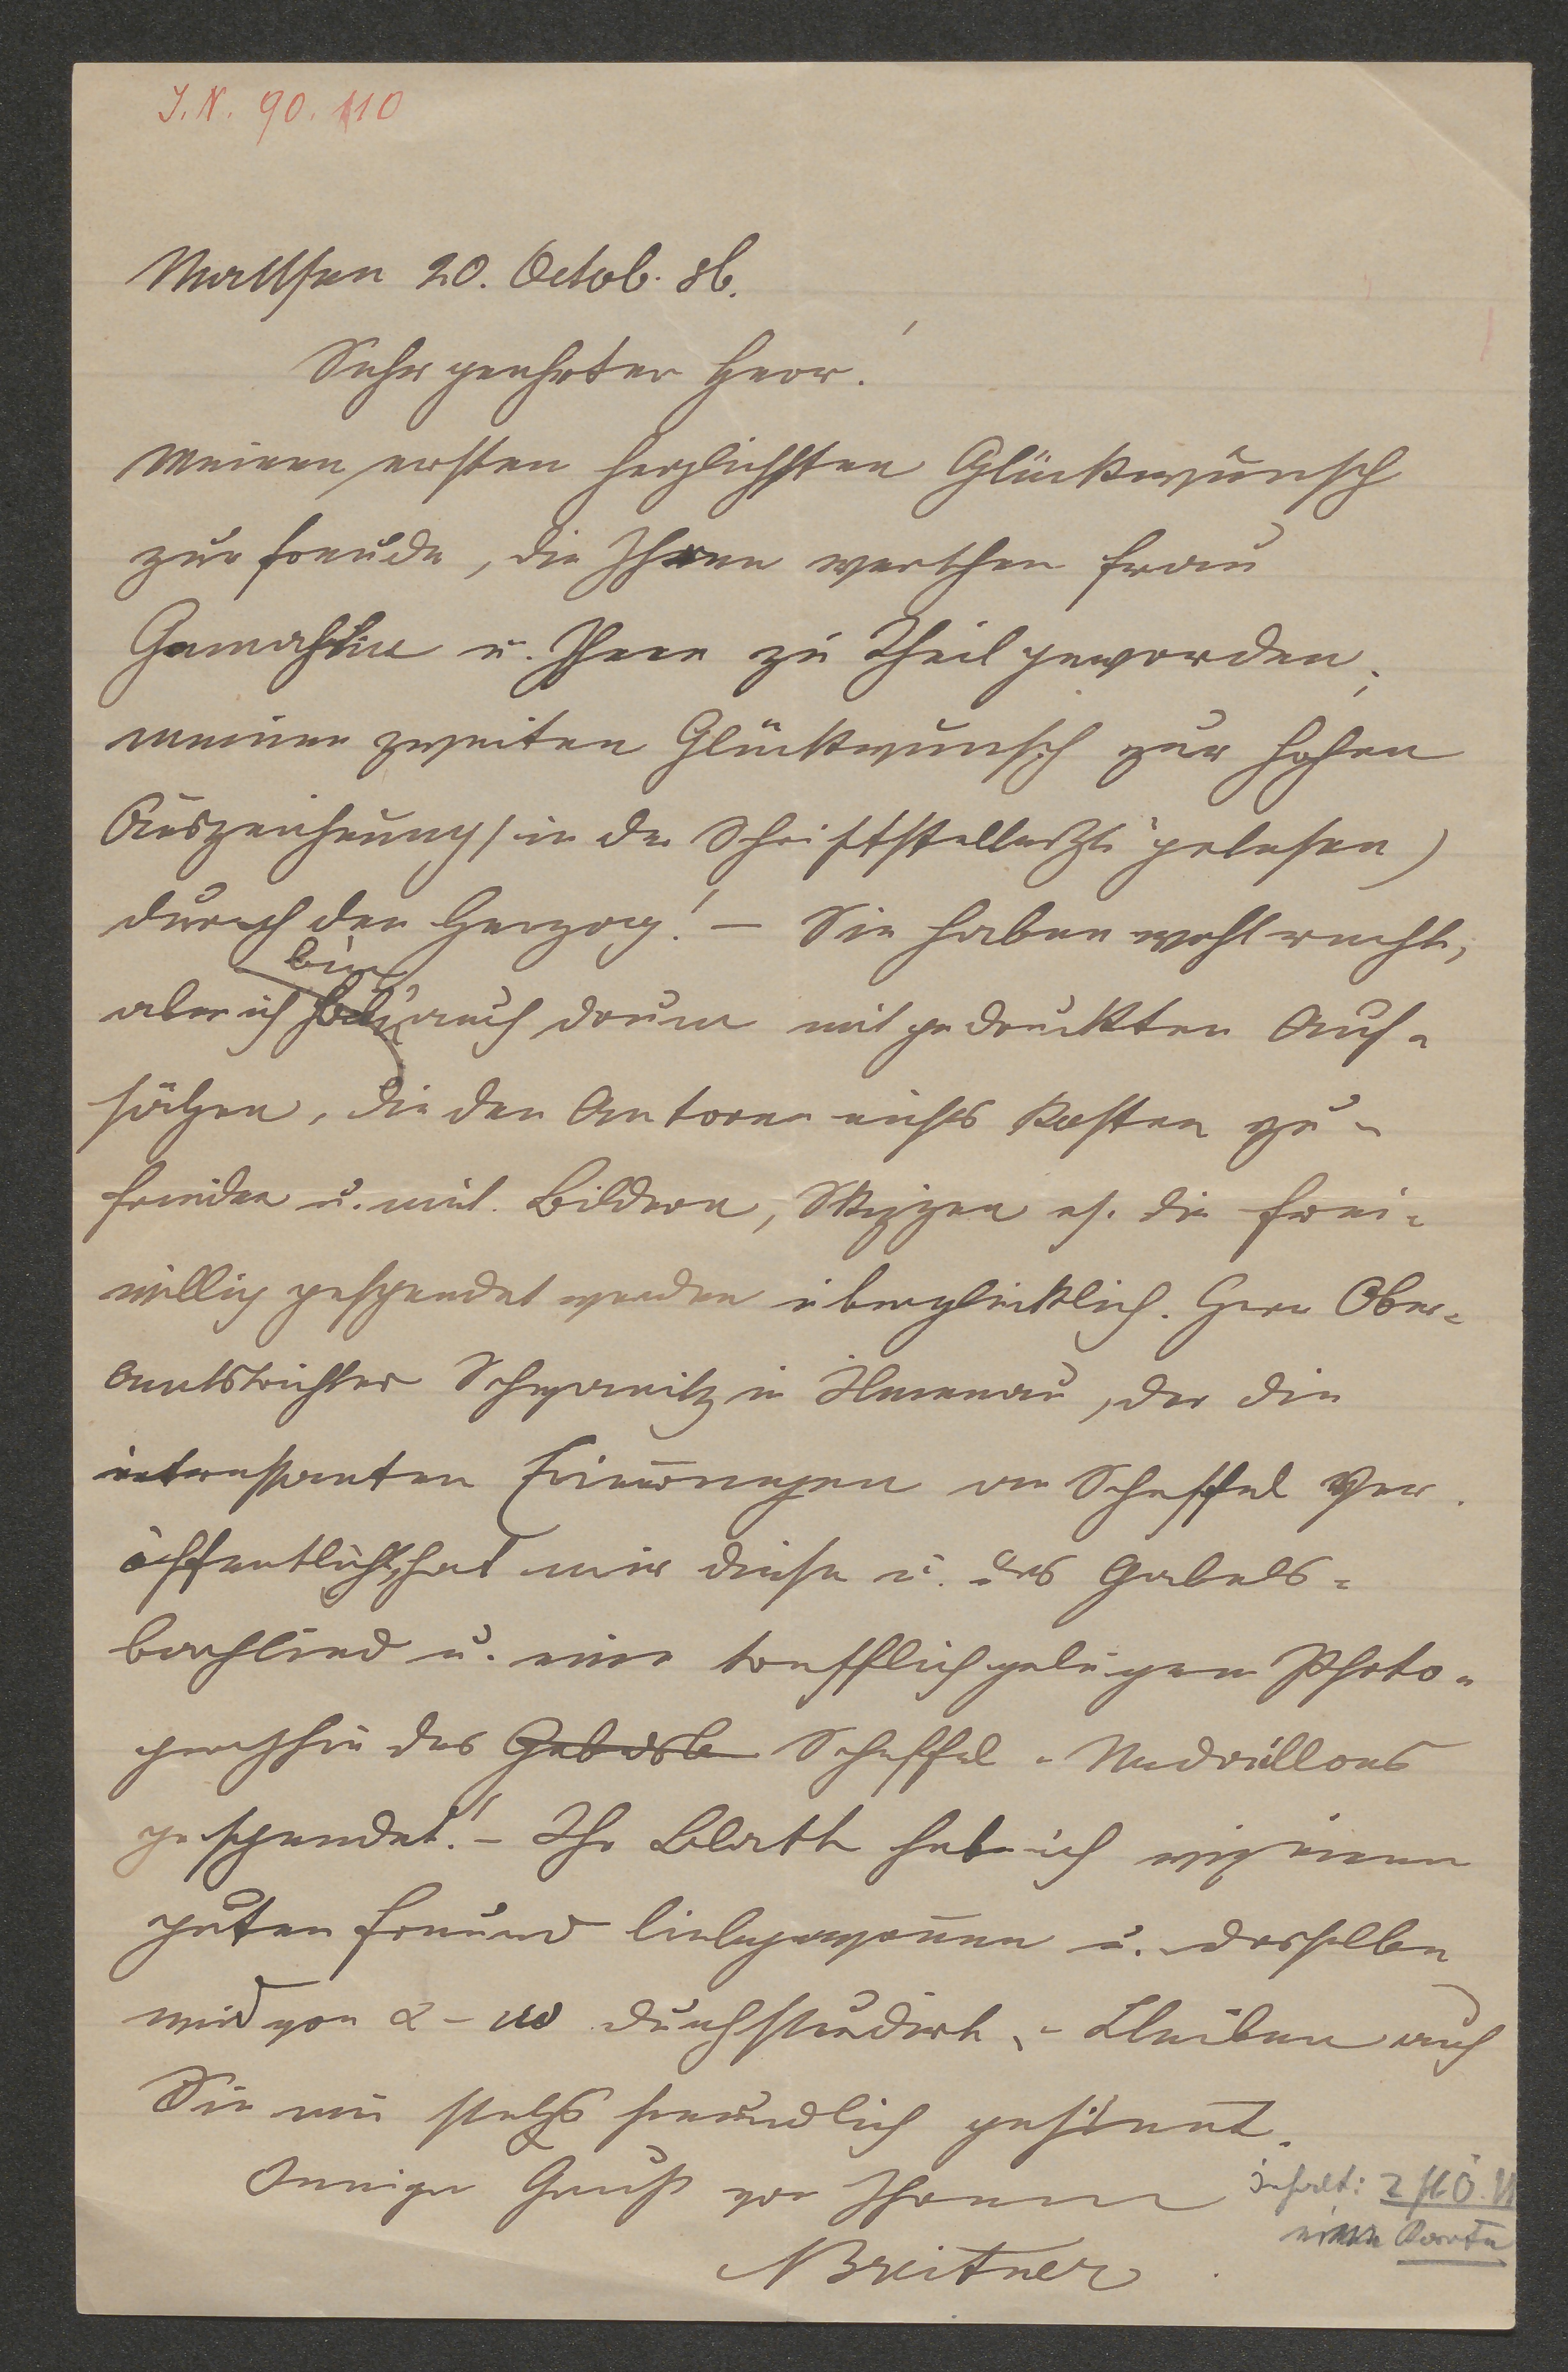 I.N. 90.110
Mattsee 20. Octob. 86.
Sehr geehrter Herr!
Meinen ersten herzlichsten Glückwunsch
zur Freude, die Ihrer werthen Frau
Gemahlin u. Ihnen zu Theil geworden;
meinen zweiten Glückwunsch zur hohen
Auszeichnung (in der Schriftstellerztg gelesen)
durch den Herzog! – Sie haben wohl recht,
bin
aber ich hab auch drum mit gedruckten Auf-
sätzen, die den Autoren nichts kosten zu-
frieden u. mit Bildern, Skizzen etc. die frei-
willig gespendet werden überglücklich. Herr Ober-
amtsrichter Schwanitz in Ilmenau, der die
interessanten Erinnerungen an Scheffel ver-
öffentlicht, hat mir diese u. das Gabels-
bachlied u. eine trefflich gelungene Photo-
graphie des Gabelsb Scheffel-Medaillons
gespendet! – Ihr Blatt hab ich wie einen
guten Freund liebgewonnen u. dasselbe
wird von α – ω durchstudirt. – Bleiben auch
Sie mir stets freundlich gesinnt.
Innigen Gruß von Ihrem
ABreitner
Inhalt: 2 fl Ö.W
eine Karte